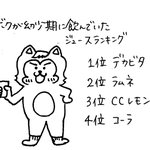 ボクが幼少期に飲んでいた
ジュースランキング
1位 デカビタ
2位 ラムネ
3位 CCレモン
4位 コーラ